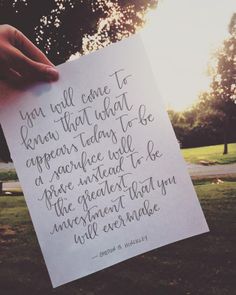 you will come to
know that what
appears today to be
a sacrifice will
prove instead to be
the greatest
investment that you
will ever make.
— GORDON B. HINCKLEY